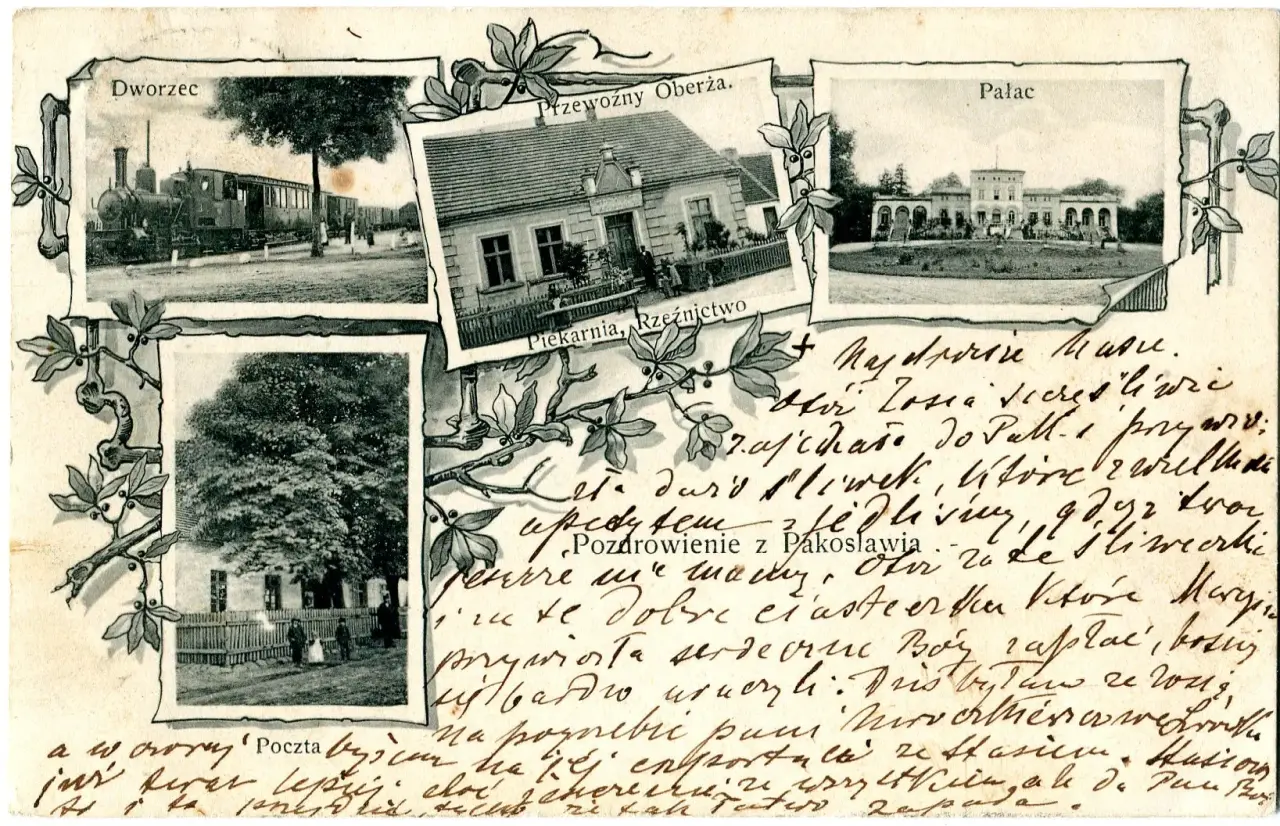 Dworzec
Przewoźny Oberża.
Pałac
Piekarnia, Rzeźnictwo
Pozdrowienie z Pakosławia
Poczta
Otóż Zosia szczęśliwie
zajechała do Pak. i przywio:
zła dużo śliwek, które z wielkim
apetytem zjedliśmy, gdyż twoi
jeszcze nie mamy, Otóż za te śliweczki
i za te dobre ciasteczka które Marysia
przywiozła serdeczne Bóg zapłać, bośmy
się bardzo uraczyli. Dziś byłam ze Zosią
na pogrzebie pani
a w czoraj byłam na jej exportacii ze Stasiem. Stasiowi
już teraz lepiej, choć ze wszystkiem, ale da Pan Bóg
że i to przejdzie, tylko że tak łatwo zapada.